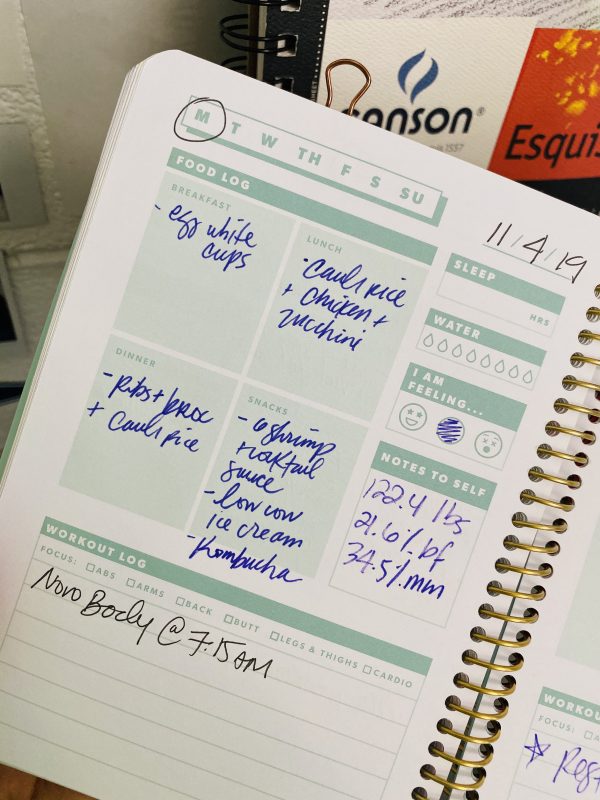 SHEET
canson
depuis 1557
Esquis
M T W TH F S SU
11/4/19
FOOD LOG
BREAKFAST
- egg white
cups
LUNCH
- Cauli rice
+ chicken +
zucchini
DINNER
- Ribs + broc
+ Cauli rice
SNACKS
- 6 shrimp
+ cocktail
sauce
- low cow
ice cream
- Kombucha
SLEEP
HRS
WATER
I AM
FEELING...
NOTES TO SELF
122.4 lbs
21.6% bf
34.5% mm
WORKOUT LOG
FOCUS: ABS ARMS BACK BUTT LEGS & THIGHS CARDIO
Novo Body @ 7:15 AM
WORKOU
FOCUS: A
Rest